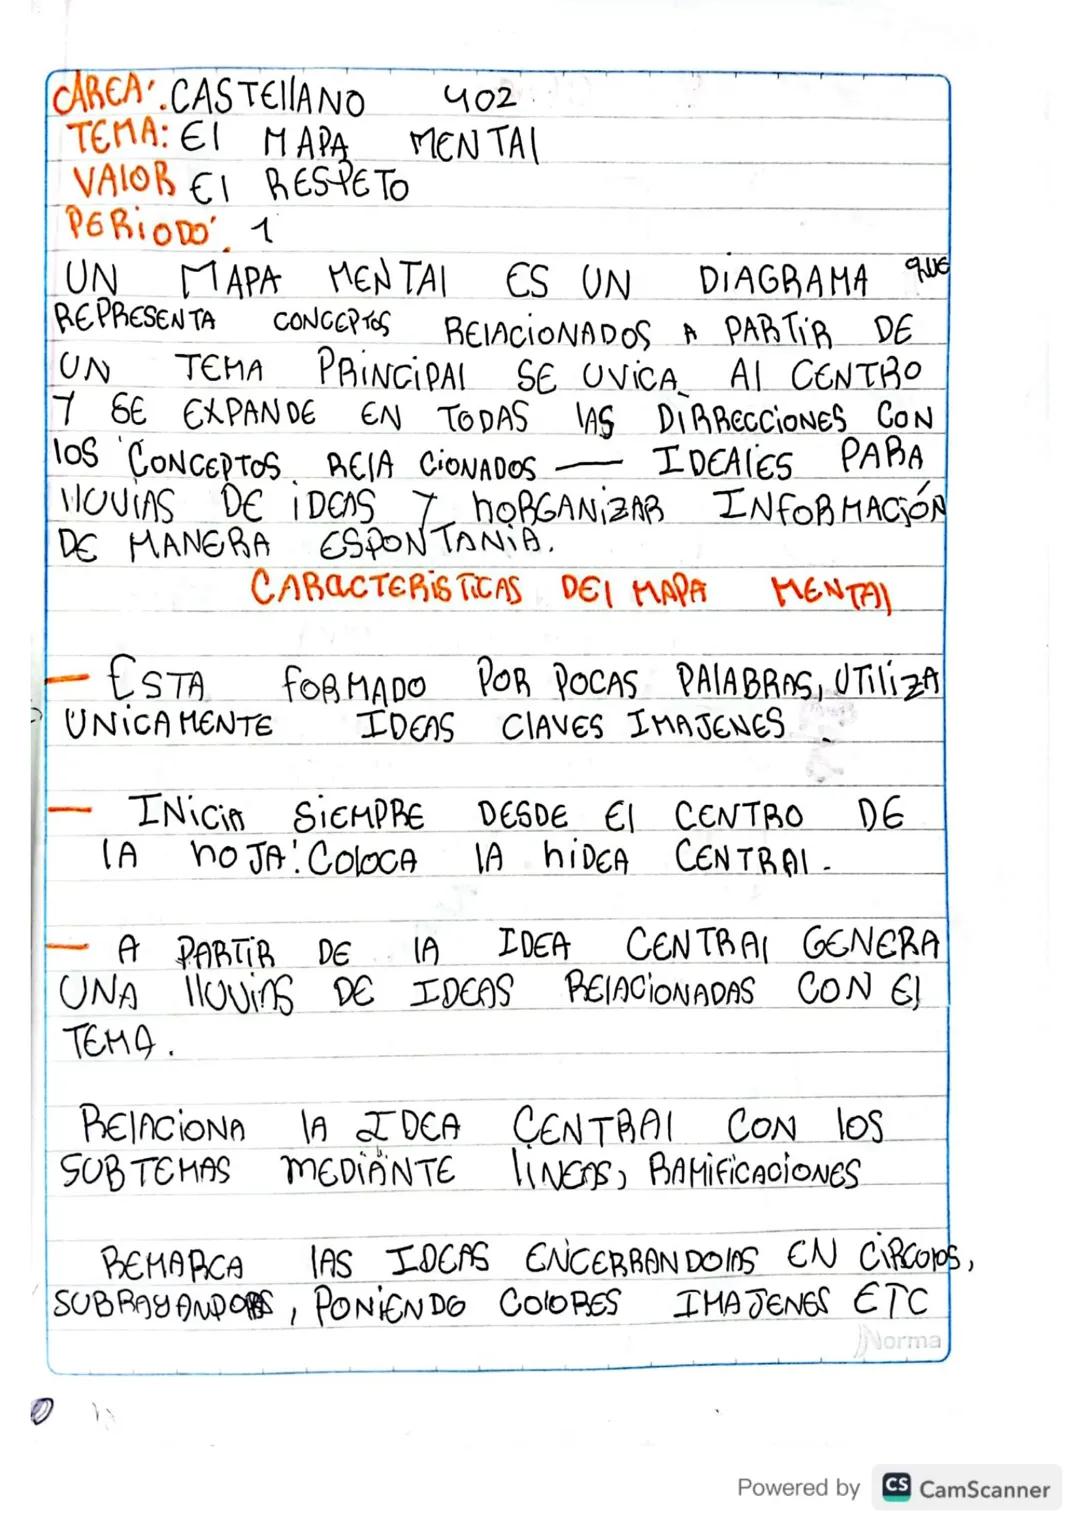 ÁREA: CASTEllANO 402
TEMA: El MAPA MENTAl
VAlOR El RESPETO
PERIODO: 1
UN MAPA MENTAl ES UN DIAGRAMA QUE
REPRESENTA CONCEPTOS RElACIONADOS A PARTIR DE
UN TEMA PRINCIPAl SE UVICA Al CENTRO
Y SE EXPANDE EN TODAS lAS DIRRECCIONES CON
lOS CONCEPTOS RElACIONADOS — IDEAlES PARA
llUVIAS DE IDEAS Y hORGANIZAR INFORMACIÓN
DE MANERA ESPONTANIA.
CARACTERISTICAS DEl MAPA MENTAl
- ESTA FORMADO POR POCAS PAlABRAS, UTIlIZA
UNICAMENTE IDEAS ClAVES IMAJENES
- INICIA SIEMPRE DESDE El CENTRO DE
lA hOJA: COlOCA lA hIDEA CENTRAl.
- A PARTIR DE lA IDEA CENTRAl GENERA
UNA llUVIAS DE IDEAS RElACIONADAS CON El
TEMA.
RElACIONA lA IDEA CENTRAl CON lOS
SUBTEMAS MEDIANTE lINEAS, RAMIFICACIONES
REMARCA lAS IDEAS ENCERRANDOlAS EN CIRCOlOS,
SUBRAYANDOlAS, PONIENDO COlORES IMAJENES ETC
Norma
Powered by CS CamScanner